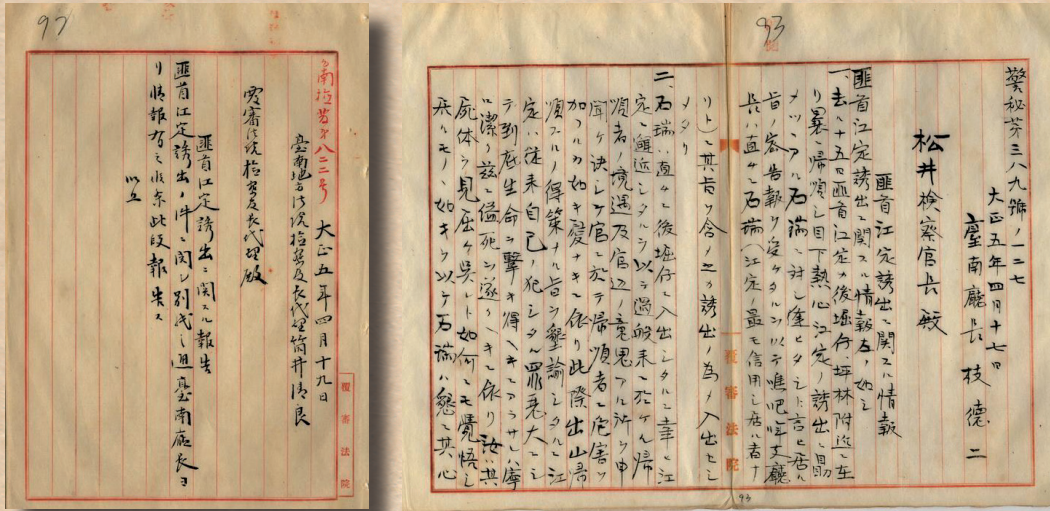 97
南檢警第八二二号 大正五年四月十九日
臺南地方法院檢察官長代理筒井清良
覆審法院檢察官長代理殿
匪首江定誘出ニ關スル報告
匪首江定誘出ノ件ニ関シ別紙之通臺南廳長ヨ
リ情報有之候条此段報告ス
以上
覆審法院
93
警秘第三八九號ノ一二七
大正五年四月十七日
臺南廳長枝德二
松井檢察官長殿
匪首江定誘出ニ関スル情報
匪首江定誘出ニ関スル情報左ノ如シ
一、去ル十五日匪首江定カ後堀仔、坪林附近ニ在
リ曩ニ帰順シ目下熱心江定ノ誘出ニ勗
メツヽアル石瑞ニ対シ逢ヒタシト言ヒ居ル
旨ノ密告報ヲ受ケタルヲ以テ噍吧哖支廳
長ハ直ニ石瑞(江定ノ最モ信用シ居ル者ナ
リト)ニ其旨ヲ含メ之カ誘出ノ為メ入山セシ
メタリ
覆審法院
二、石瑞ハ直ニ後堀仔ニ入山シタルニ幸ニ江
定ニ邂逅シタルヲ以テ過般来ニ於ケル帰
順者ノ境遇及官辺ノ意思アル所ヲ申
聞ケ決シテ官ニ於テ帰順者ニ危害ヲ
加フルカ如キ憂ナキニ依リ此際出山帰
順スルノ得策ナル旨ヲ懇諭シタルニ江
定ハ従来自己ノ犯シタル罪悪大ニシ
テ到底生命ヲ繋キ得ヘキニアラサレハ寧
ロ潔ク茲ニ縊死ヲ遂クヘキニ依リ汝ハ其
屍体ヲ見届ケ呉レト如何ニモ覺悟シ
タルモノヽ如キヲ以テ石瑞ハ懇ニ其心
93